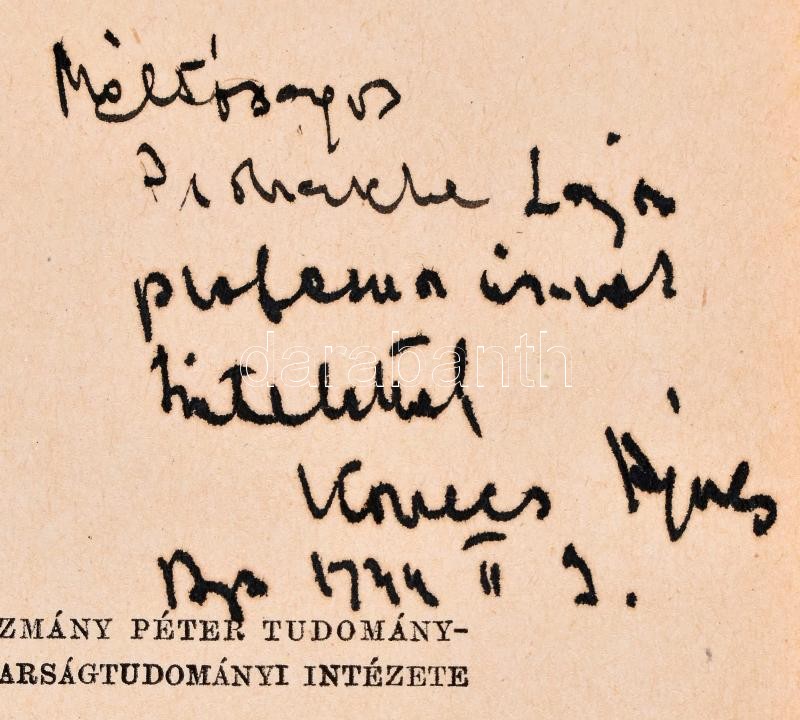 Méltóságos
Lajos
professor úrnak
tisztelettel
Kovács Ágnes
Bp 1944 II 9.
darabanth
ZMÁNY PÉTER TUDOMÁNY-
ARSÁGTUDOMÁNYI INTÉZETE